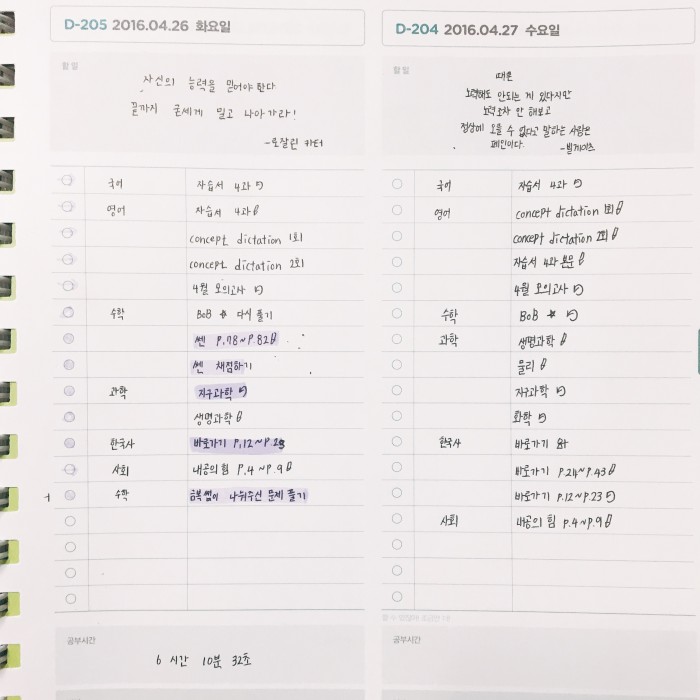 D-205 2016.04.26 화요일
할 일
자신의 능력을 믿어야 한다
끝까지 굳세게 밀고 나아가라!
-로잘린 카터
국어 자습서 4과
영어 자습서 4과
concept dictation 1회
concept dictation 2회
4월 모의고사
수학 BOB ★ 다시 풀기
쎈 P.78~P.82
쎈 채점하기
과학 지구과학
생명과학
한국사 바로가기 P.12~P.23
사회 내공의 힘 P.4~P.9
수학 나눠주신 문제 풀기
공부시간
6 시간 10분 32초
D-204 2016.04.27 수요일
할 일
때론
노력해도 안되는 게 있다지만
노력조차 안 해보고
정상에 오를 수 없다고 말하는 사람은
폐인이다.
-빌게이츠
국어 자습서 4과
영어 concept dictation 1회
concept dictation 2회
자습서 4과 본문
4월 모의고사
수학 BOB ★
과학 생명과학
물리
지구과학
화학
한국사 바로가기
바로가기 P.24~P.43
바로가기 P.12~P.23
사회 내공의 힘 P.4~P.9
공부시간